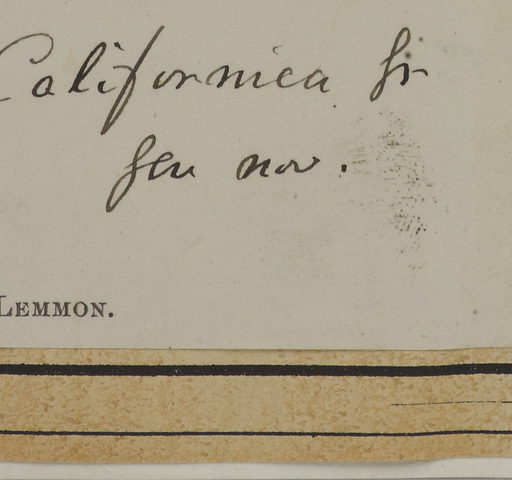 Californica Gr
gen nov.
LEMMON.